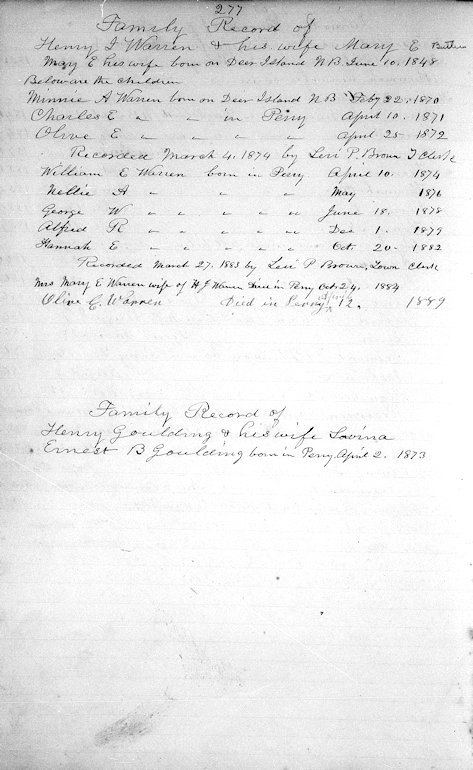 277
Family Record of
Henry J Warren & his wife Mary E
Mary E his wife born on Deer Island N.B. June 10. 1848
Below are the children
Minnie A Warren born on Deer Island N B Feby 22. 1870
Charles E " " in Perry April 10. 1871
Olive E " " " " April 25 1872
Recorded March 4. 1874 by Levi P. Brown T Clerk
William E Warren born in Perry April 10. 1874
Nellie A " " " " May 1876
George W " " " " " June 18. 1878
Alfred R " " " " " Dec 1. 1879
Hannah E " " " " " Oct. 20. 1882
Recorded March 27. 1883 by Levi P Brown, Town Clerk
Mrs Mary E Warren wife of H J Warren Died in Perry Oct. 24. 1884
Olive E. Warren Died in Perry April 12. 1889
Family Record of
Henry Goulding & his wife Lovina
Ernest B Goulding born in Perry April 2. 1873